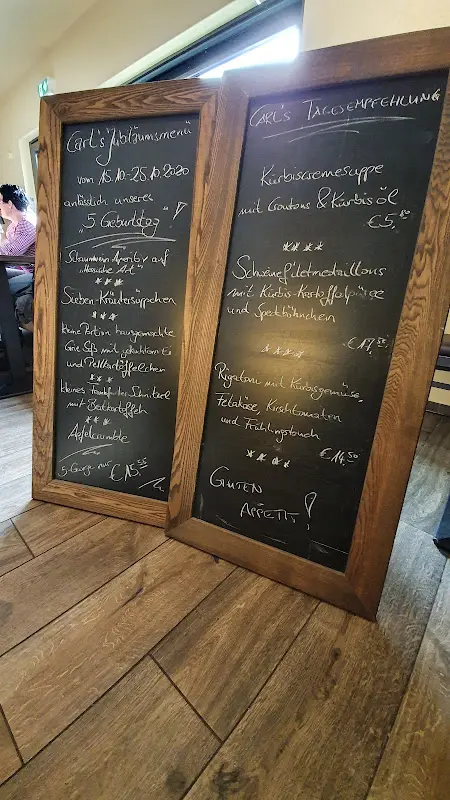 Carl's Jubiläumsmenü
vom 15.10.-25.10.2020
anlässlich unseres
"5 Geburtstag"!
Schaumwein Aperitiv auf
"Hessische Art"
***
Sieben-Kräutersüppchen
***
kleine Portion hausgemachte
Grüne Soß mit gekochtem Ei
und Pellkartöffelchen
***
kleines Frankfurter Schnitzel
mit Bratkartoffeln
***
Apfelcrumble
5-Gänge nur €15,55
CARL'S TAGESEMPFEHLUNG
Kürbiscremesuppe
mit Croutons & Kürbisöl
€5,80
****
Schweinefiletmedaillons
mit Kürbis-Kartoffelpüree
und Speckböhnchen
€17,50
****
Rigatoni mit Kürbisgemüse,
Fetakäse, Kirschtomaten
und Frühlingslauch
€14,50
****
GUTEN
APPETIT!